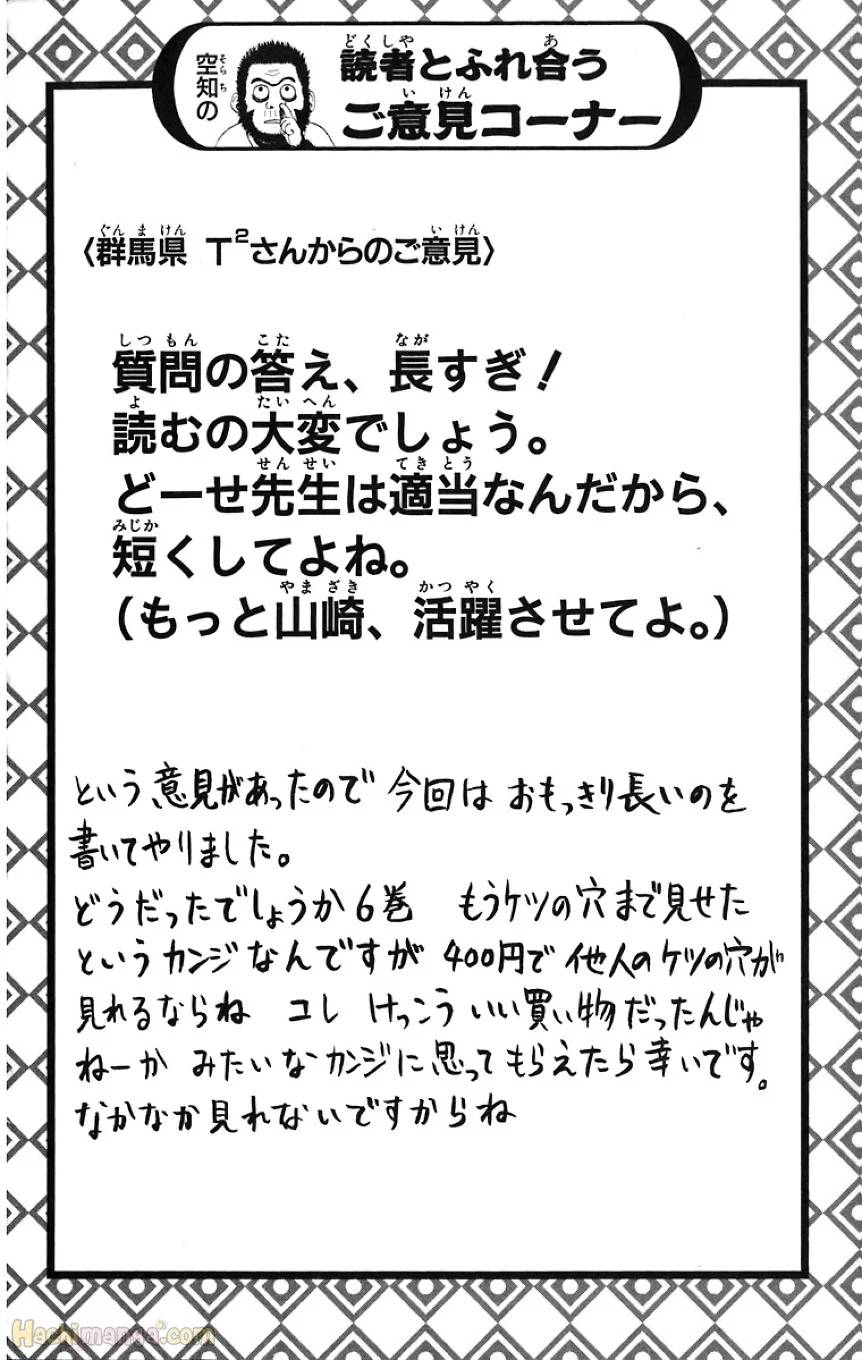 空知の
読者とふれ合う
ご意見コーナー
〈群馬県 T²さんからのご意見〉
質問の答え、長すぎ!
読むの大変でしょう。
どーせ先生は適当なんだから、
短くしてよね。
(もっと山崎、活躍させてよ。)
という意見があったので 今回は おもっきり長いのを
書いてやりました。
どうだったでしょうか6巻 もうケツの穴まで見せた
というカンジなんですが 400円で他人のケツの穴が
見れるならね コレ けっこういい買い物だったんじゃ
ねーか みたいなカンジに思ってもらえたら幸いです。
なかなか見れないですからね
Hachimanga.com